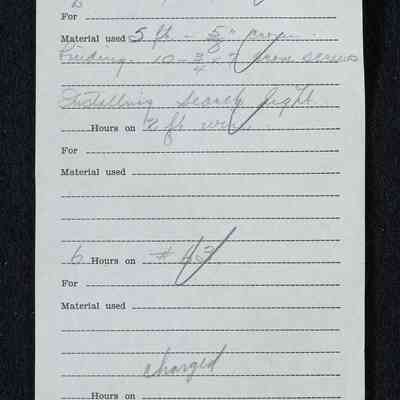 For
Material used 5 ft - 5/8"
Binding. 10 - 3/4 x 7 iron screws
Installing Search light
Hours on 2 ft wire
For
Material used
6 Hours on #43
For
Material used
charged
Hours on